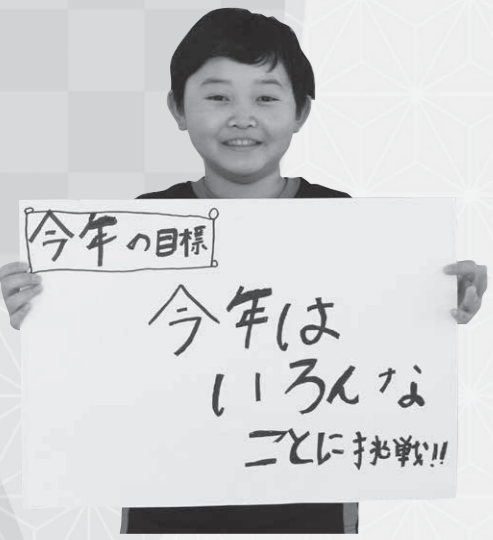 今年の目標
今年は
いろんな
ことに挑戦!!